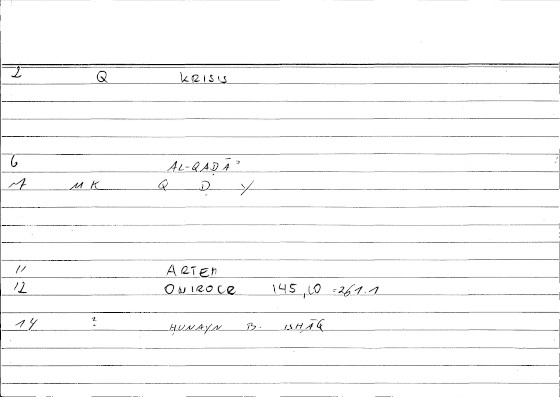 2 Q KRISIS
6 AL-QAḌĀʾ
7 MK Q Ḍ Y
11 ARTEM
12 ONIROCR 145,20 = 261.1
14 ? ḤUNAYN B. ISḤĀQ